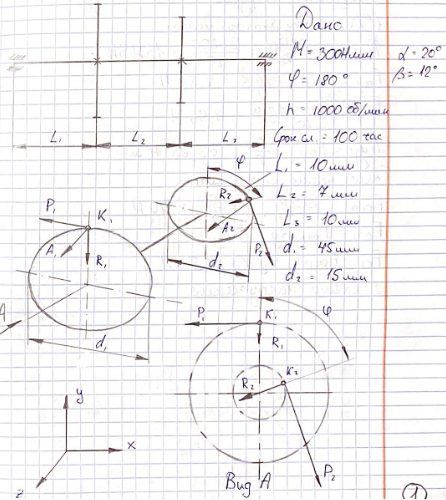 Дано
M = 300Нмм
α = 20°
φ = 180°
β = 12°
n = 1000 об/мин
Срок сл. = 100 час
L₁ = 10мм
L₂ = 7мм
L₃ = 10мм
d₁ = 45мм
d₂ = 15мм
L₁ L₂ L₃
φ
P₁ K₁
R₂
A₂
A₁ R₁
P₂
d₂
A
d₁
P₁ K₁ φ
R₁
R₂ K₂
P₂
y
x
z
Вид А
1